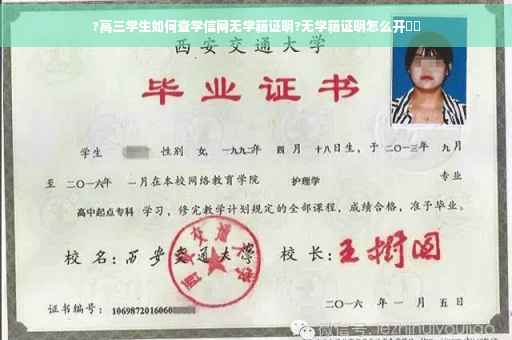 ?高三学生如何查学信网无学籍证明?无学籍证明怎么开
西安交通大学
毕业证书
学生 性别 女,一九九二年 四 月 十八日生,于二〇一三年 九月
至 二〇一六年 一月在本校网络教育学院 护理学 专业
高中起点专科 学习,修完教学计划规定的全部课程,成绩合格,准予毕业。
校 名:西安交通大学 校 长:王树国
西安交通大学
证书编号: 1069872016060
二〇一六 年 一 月 五 日
微信号:jezhihuiyoujiao